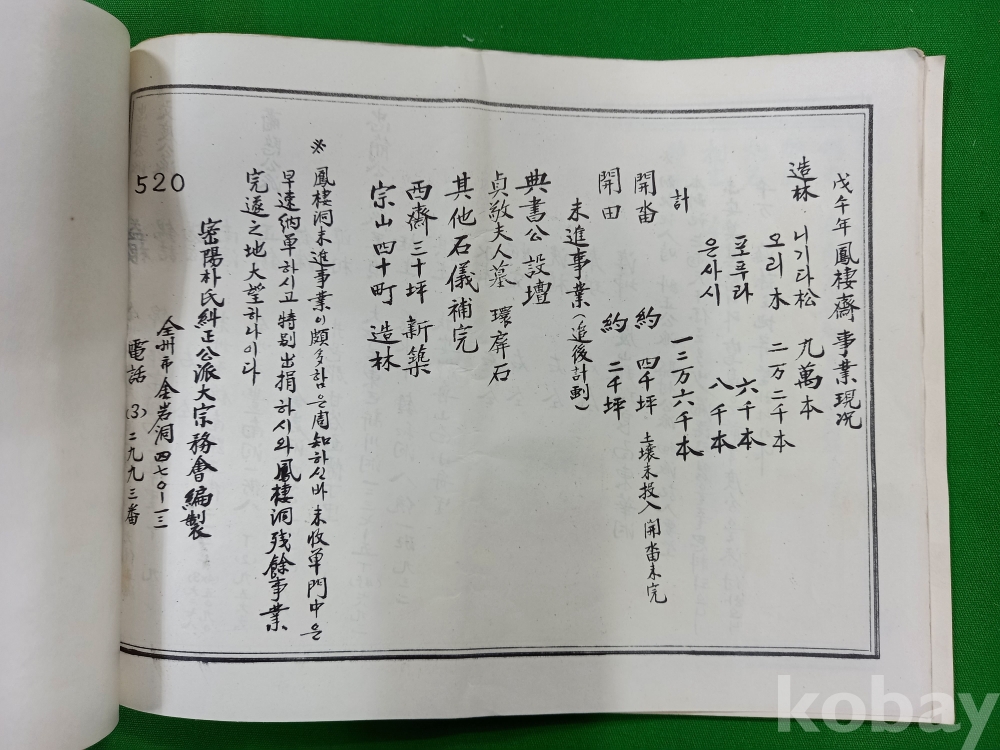 戊午年鳳棲齋事業現況
造林 니기다松 九萬本
오리木 二万二千本
포푸라 六千本
은싸시 八千本
計 一二万六千本
開畓 約 四千坪 土壤未投入 開畓未完
開田 約 二千坪
未進事業(追後計劃)
典書公 設壇
貞敬夫人墓 環屛石
其他石儀補完
西齋 三十坪 新築
宗山 四十町 造林
※ 鳳棲洞未進事業이 頗多함은 周知하신바 未收單門中은
早速納單하시고 特別出捐하시와 鳳棲洞残餘事業
完遂之地大望하나이다
520
密陽朴氏糾正公派大宗務會編製
全州市 金岩洞 四七0-一三
電話 (3) 二九九三番
kobay